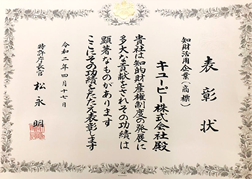 表彰状
知財活用企業（商標）
キューピー株式会社殿
貴社は知的財産権制度の発展に
多大な貢献をされその功績は
顕著なものがあります
ここにその功績をたたえ表彰します
令和二年四月十七日
特許庁長官 松永明